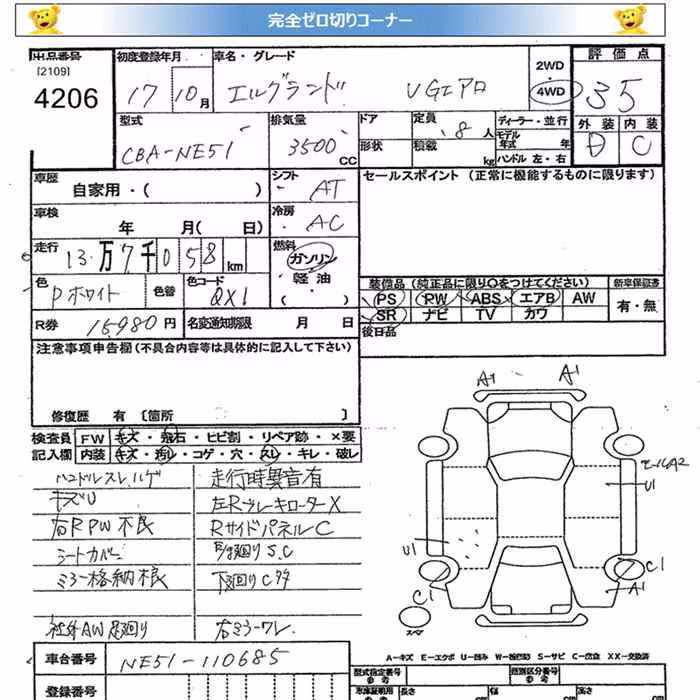 完全ゼロ切りコーナー
出品番号 初度登録年月 車名・グレード 2WD 評価点
[2109] 4WD
4206 17 10月 エルグランド VGエアロ 35
型式 排気量 ドア 定員 ディーラー・並行 外装 内装
CBA-NE51 3500cc 形状 8人 モデル年式 年 D C
積載 kg ハンドル 左・右
車歴 シフト セールスポイント (正常に機能するものに限ります)
自家用・( ) AT
車検 冷房
年 月( 日) AC
走行 13万7千058km 燃料
ガソリン
色 色替 色コード 軽油 装備品 (純正品に限り○をつけてください) 新車保証書
Pホワイト QX1 ( ) PS PW ABS エアB AW 有・無
SR ナビ TV カワ
R券 15980円 名変通知期限 月 日 後日品
注意事項申告欄(不具合内容等は具体的に記入して下さい)
修復歴 有 [箇所 ]
A1 A1
検査員 FW キズ・飛石・ヒビ割・リペア跡・×要
記入欄 内装 キズ・汚レ・コゲ・穴・スレ・キレ・破レ
ハンドルスレ,ハゲ 走行時異音有
キズU 左RブレーキローターX
右RPW不良 RサイドパネルC
シートカバー 下廻りS.C
ミラー格納不良 下廻りCクチ
社外AW 足廻り 右ミラーワレ
モールA2
U1
U1
C1 C1
A1
スペア
A-キズ E-エクボ U-凹み W-補修跡 S-サビ C-腐食 XX-交換済
車台番号 NE51-110685
型式指定番号 類別区分番号
参考 参考
登録番号 車庫証明用 長さ 幅 高さ